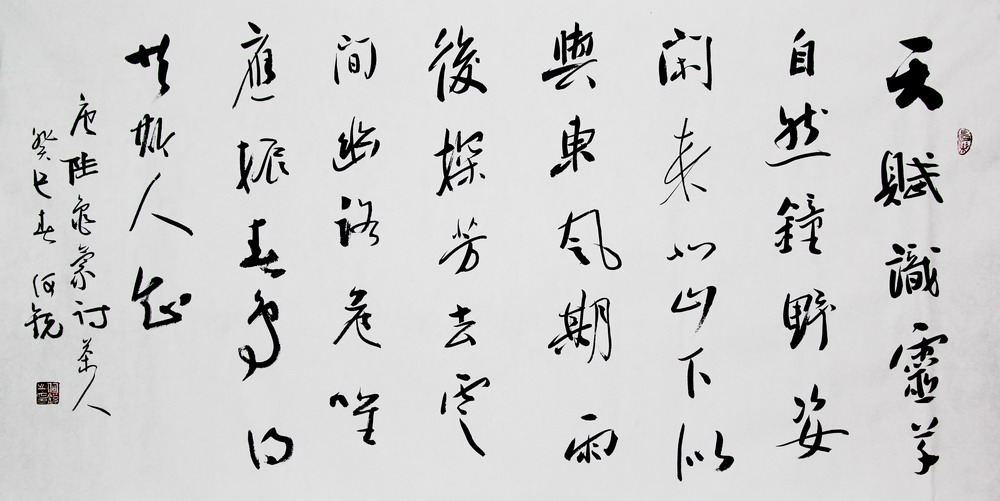 天賦識靈草
自然鐘野姿
閑来北山下似
與東風期雨
後探芳去雲
間幽路危唯
應報春鳥得
共斯人知
唐陸龜蒙詩茶人
癸巳春 何銳